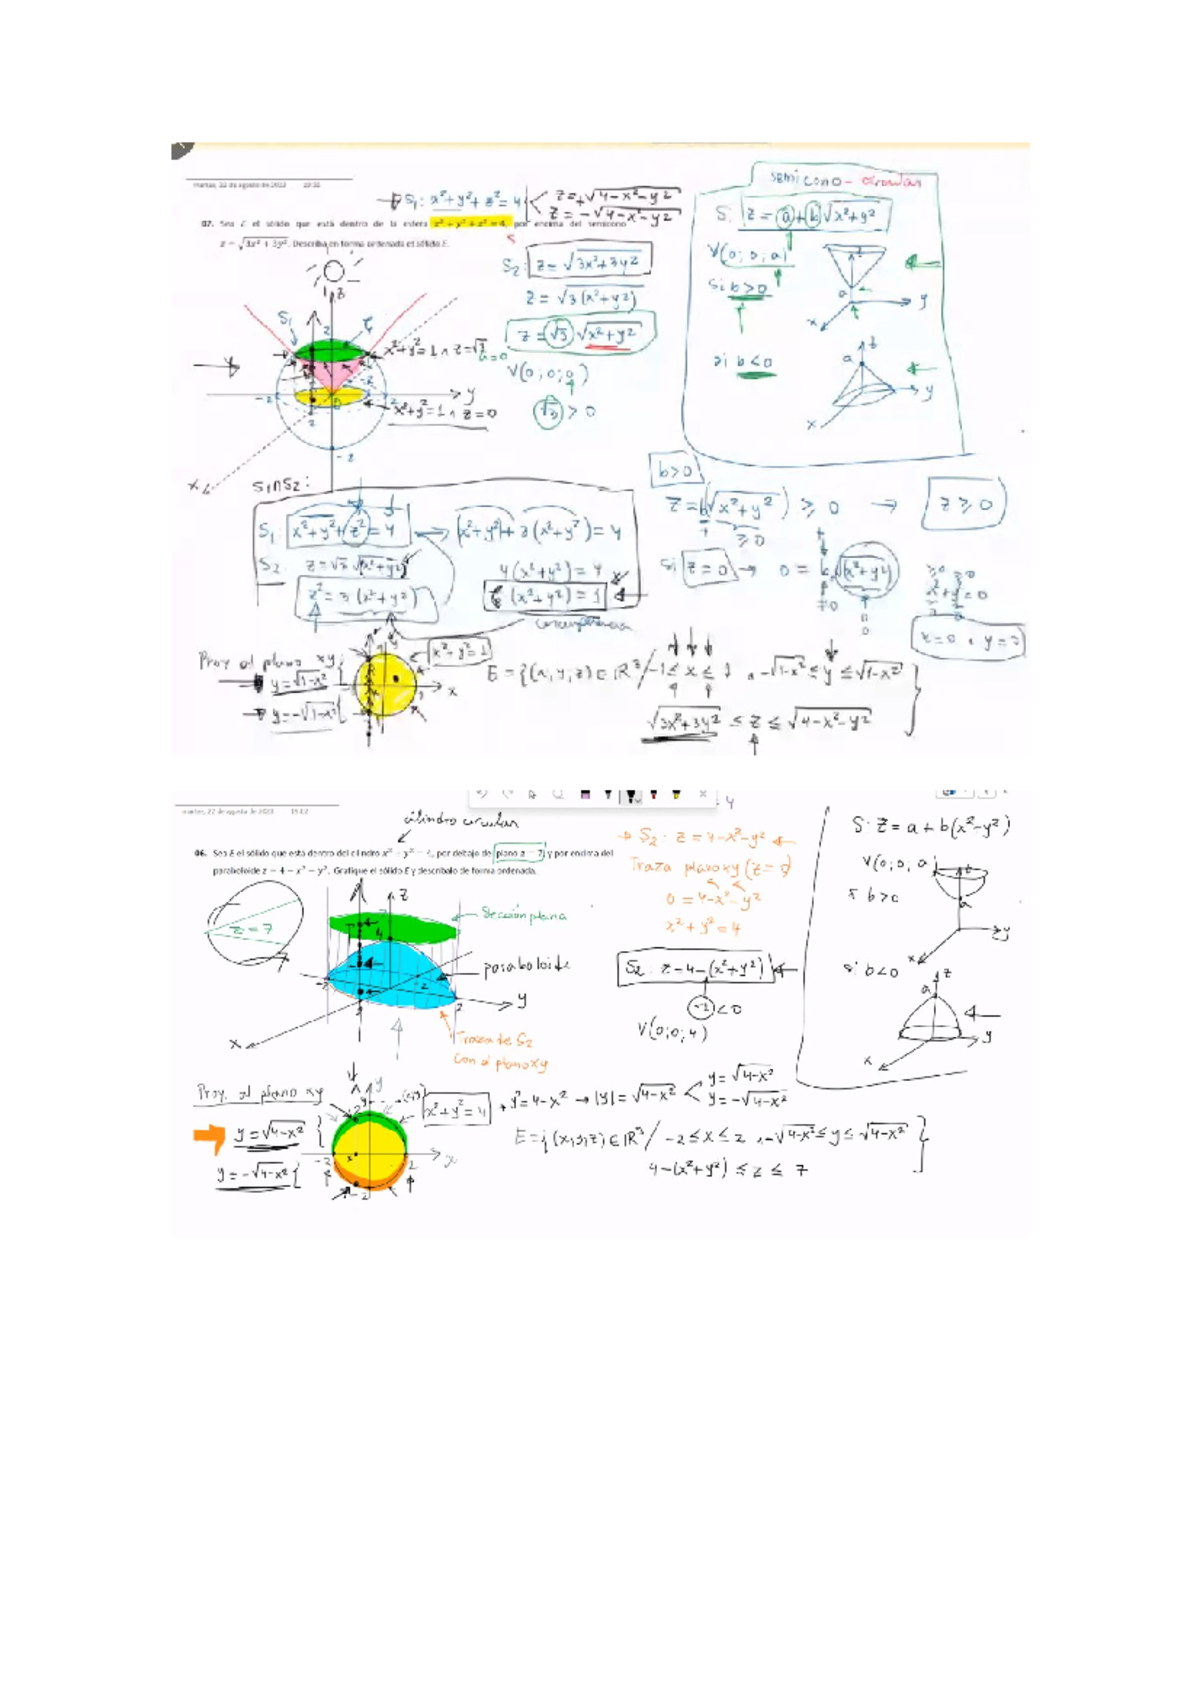 martes, 22 de agosto de 2023
S₁: x²+y²+z²=4
z=+√(4-x²-y²)
z=-√(4-x²-y²)
07. Sea E el sólido que está dentro de la esfera x² + y² + z² = 4, por encima del semicono
z = √(3x² + 3y²). Describa en forma ordenada el sólido E.
S₂: z=√(3x²+3y²)
z=√(3(x²+y²))
z=√3 √(x²+y²)
a=0
V(0;0;0)
√3 > 0
semicono-circular
S: z=a+b√(x²+y²)
V(0;0;a)
Si b>0
a
y
x
si b<0
a
z
y
x
z
S₁
2
x²+y²=1 ∧ z=√3
y
-2
x²+y²=1 ∧ z=0
-2
x
S₁∩S₂:
S₁ x²+y²+z²=4 → (x²+y²)+3(x²+y²)=4
S₂ z=√3 √(x²+y²)
4(x²+y²)=4
z²=3(x²+y²)
(x²+y²)=1
circunferencia
b>0
z=b√(x²+y²) ≥ 0 → z ≥ 0
+ ≥0
Si z=0 → 0=b√(x²+y²)
≠0
x²+y²=0
x=0 ∧ y=0
Proy. al plano xy
x²+y²=1
y=√(1-x²)
y=-√(1-x²)
x
E={(x,y,z)∈ℝ³/-1≤x≤1 ∧ -√(1-x²)≤y≤√(1-x²)
√(3x²+3y²) ≤ z ≤ √(4-x²-y²)}
martes, 22 de agosto de 2023
cilindro circular
06. Sea E el sólido que está dentro del cilindro x² + y² = 4, por debajo de plano z = 7 y por encima del
paraboloide z = 4 - x² - y². Grafique el sólido E y descríbalo de forma ordenada.
S₂: z=4-x²-y²
Traza plano xy (z=0)
0=4-x²-y²
x²+y²=4
S₂: z=4-(x²+y²)
<0
V(0;0;4)
S: z=a+b(x²-y²)
V(0,0,a)
b>0
a
y
x
si b<0
z
a
y
x
z=7
z
7
4
Sección plana
paraboloide
-2
-2
2
y
x
Traza de S₂
con el plano xy
Proy. al plano xy
y
x²+y²=4
y²=4-x² → |y|=√(4-x²)
y=√(4-x²)
y=-√(4-x²)
y=√(4-x²)
y=-√(4-x²)
-2
2
x
-2
E={(x,y,z)∈ℝ³/ -2≤x≤2 ∧ -√(4-x²)≤y≤√(4-x²)
4-(x²+y²) ≤ z ≤ 7}